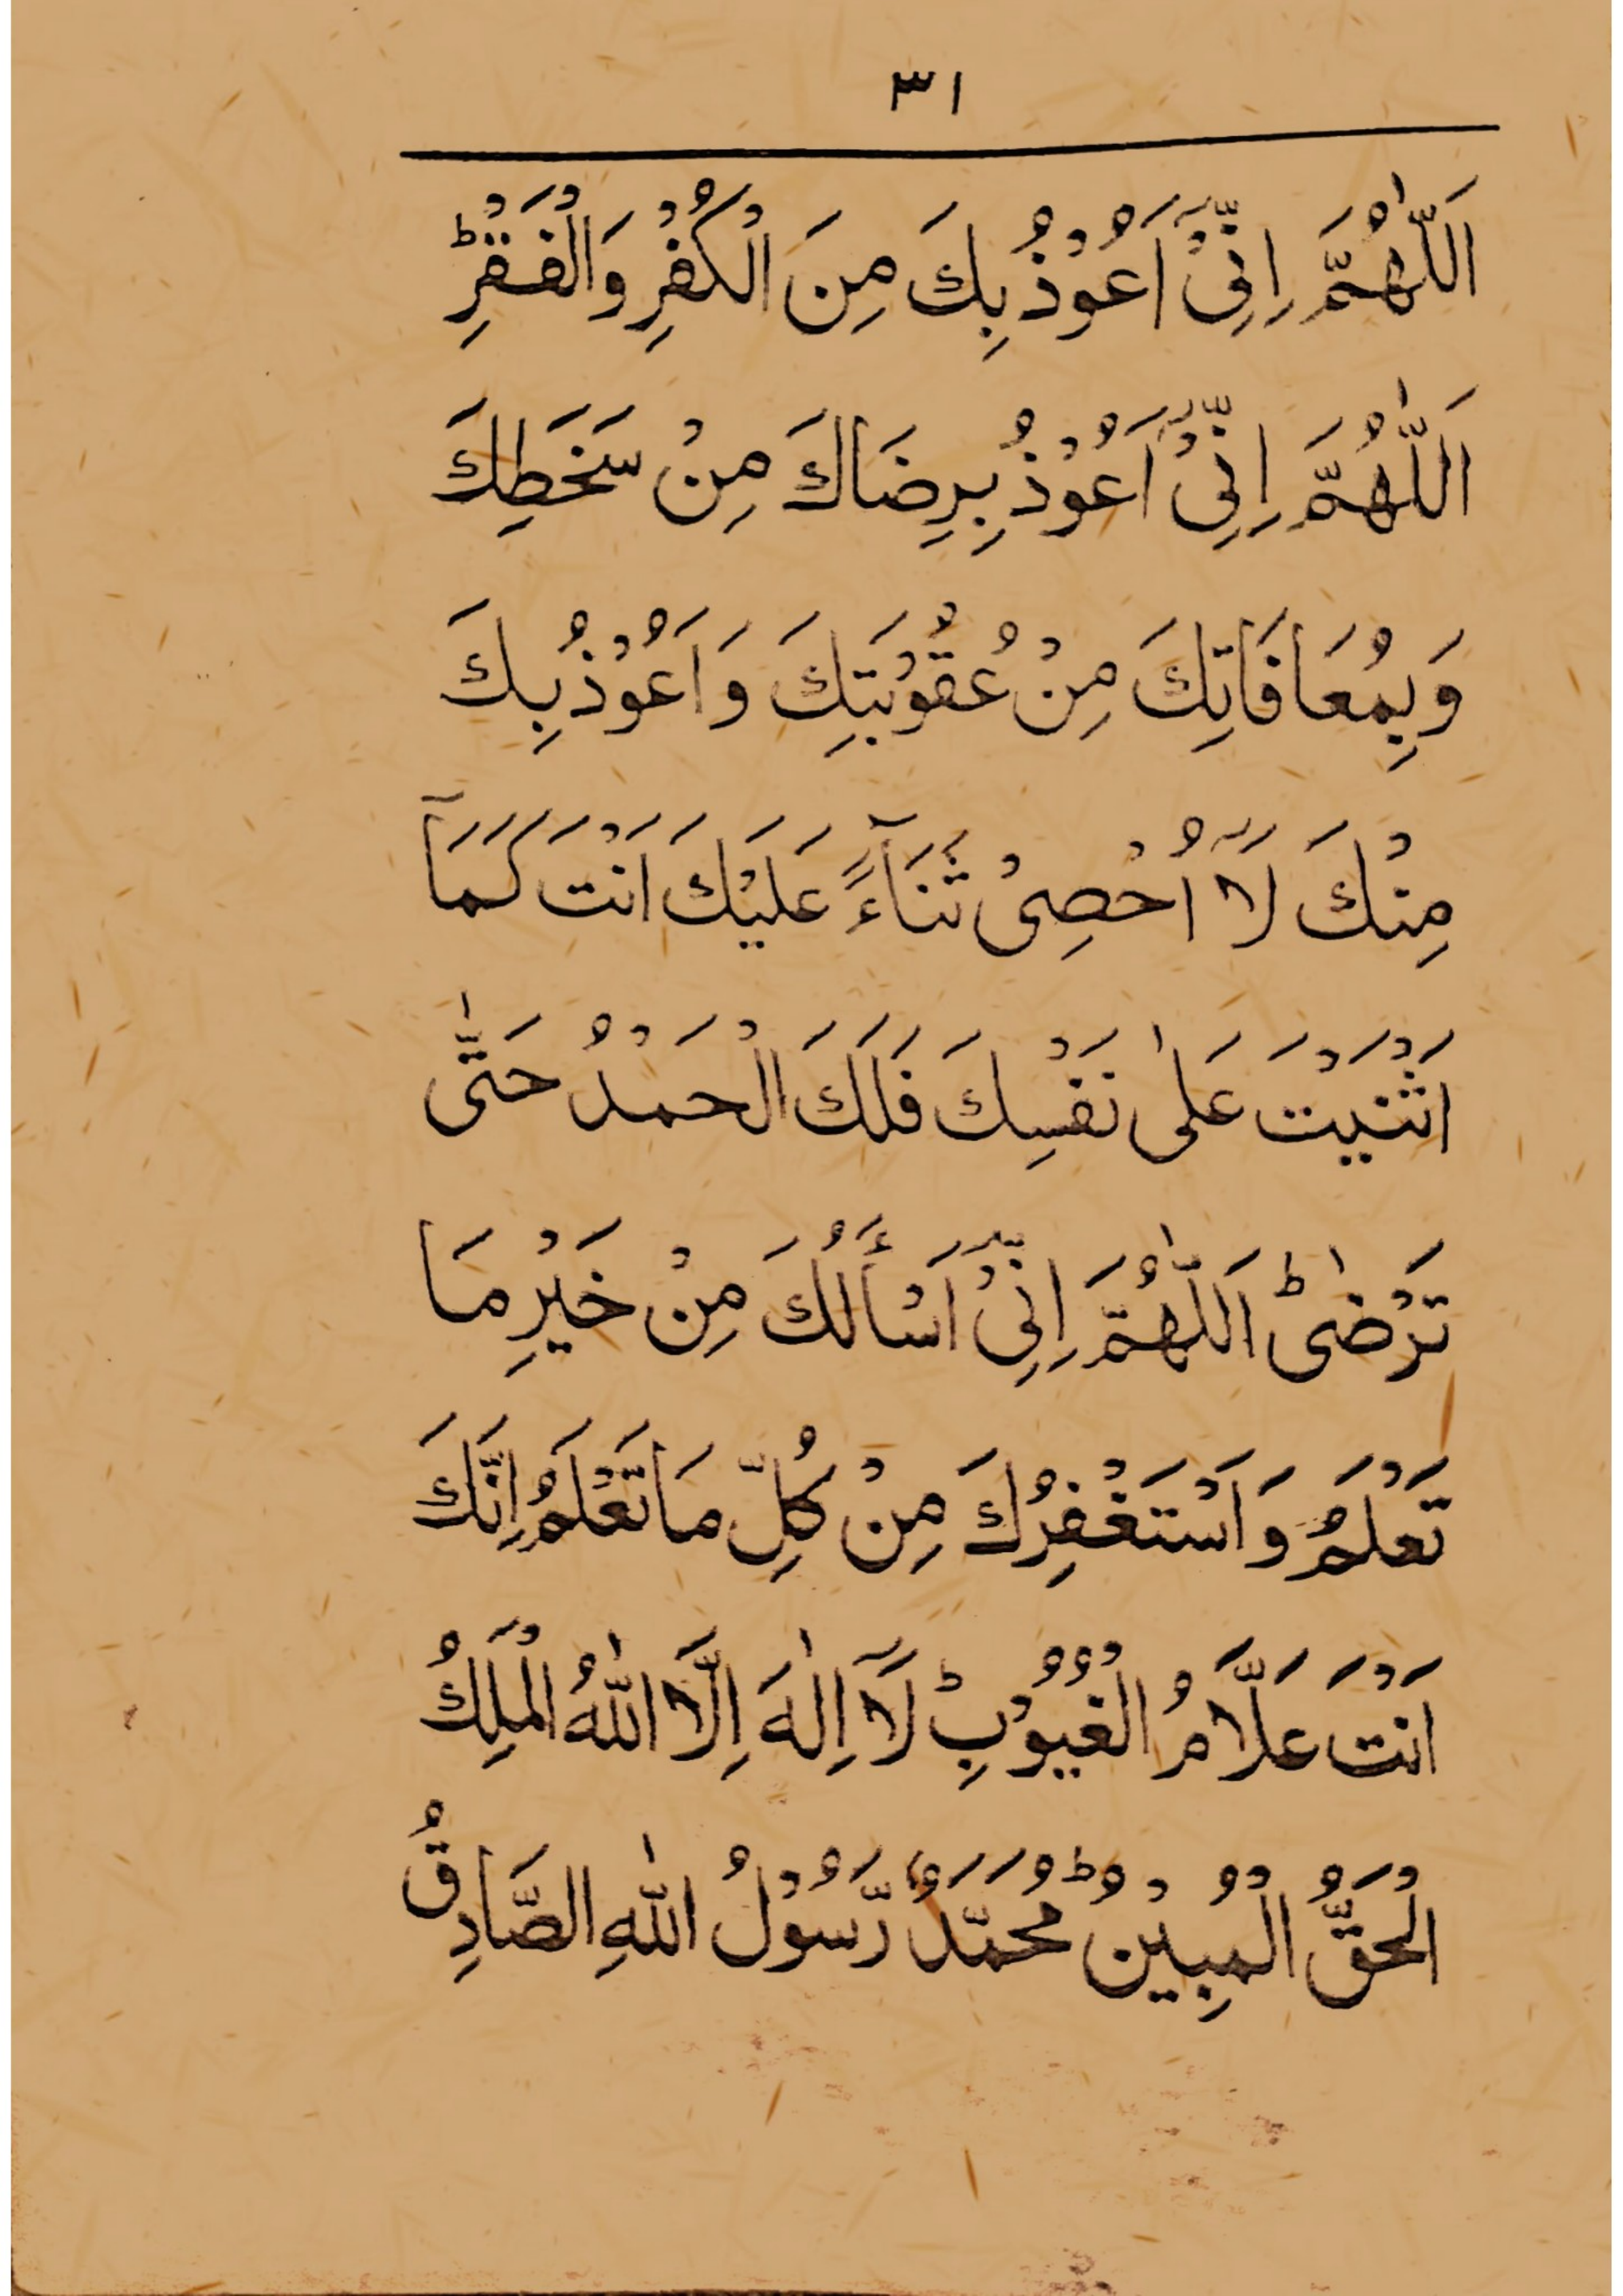 ٣١
اَللّٰهُمَّ اِنِّیْۤ اَعُوْذُ بِكَ مِنَ الْكُفْرِ وَالْفَقْرِؕ
اَللّٰهُمَّ اِنِّیْۤ اَعُوْذُ بِرِضَاكَ مِنْ سَخَطِكَ
وَبِمُعَافَاتِكَ مِنْ عُقُوْبَتِكَ وَاَعُوْذُ بِكَ
مِنْكَ لَاۤ اُحْصِیْ ثَنَآءً عَلَیْكَ اَنْتَ كَمَاۤ
اَثْنَیْتَ عَلٰی نَفْسِكَ فَلَكَ الْحَمْدُ حَتّٰی
تَرْضٰیؕ اَللّٰهُمَّ اِنِّیْۤ اَسْأَلُكَ مِنْ خَیْرِ مَا
تَعْلَمُ وَاَسْتَغْفِرُكَ مِنْ كُلِّ مَا تَعْلَمُ اِنَّكَ
اَنْتَ عَلَّامُ الْغُیُوْبِؕ لَاۤ اِلٰهَ اِلَّا اللّٰهُ الْمَلِكُ
الْحَقُّ الْمُبِیْنُؕ مُحَمَّدٌ رَّسُوْلُ اللّٰهِ الصَّادِقُ